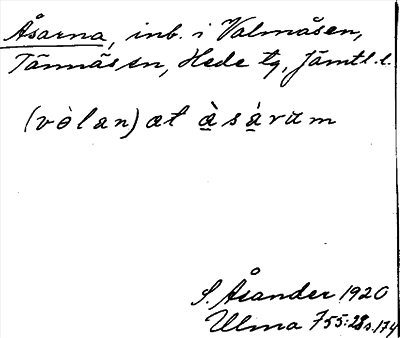 Åsarna, inb. i Valmåsen,
Tännäs sn, Hede tg, Jämtl. l.
(vòlan) at à̱sá̱rum
S. Åsander 1920
Ulma 755:28 s. 174